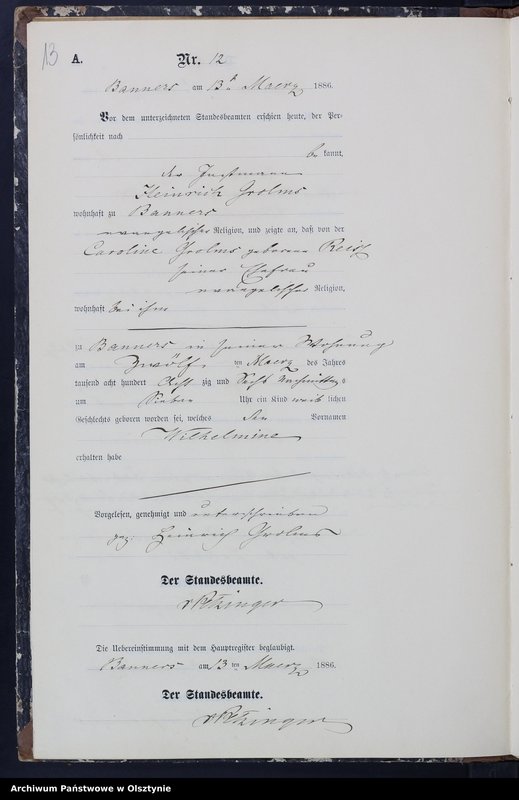 13
A. Nr. 12
Banners am 13 ten Maerz 1886.
Vor dem unterzeichneten Standesbeamten erschien heute, der Per-
sönlichkeit nach
be kannt,
der Instmann
Heinrich Grolms
wohnhaft zu Banners
evangelischer Religion, und zeigte an, daß von der
Caroline Grolms geborene
seiner Ehefrau
evangelischer Religion,
wohnhaft bei ihm
zu Banners in seiner Wohnung
am Zwölf ten Maerz des Jahres
tausend acht hundert Acht zig und Sechs Nachmittags
um Sieben Uhr ein Kind weib lichen
Geschlechts geboren worden sei, welches den Vornamen
Wilhelmine
erhalten habe
Vorgelesen, genehmigt und unterschrieben
gez. Heinrich Grolms
Der Standesbeamte.
Die Uebereinstimmung mit dem Hauptregister beglaubigt.
Banners am 13 ten Maerz 1886.
Der Standesbeamte.
Archiwum Państwowe w Olsztynie